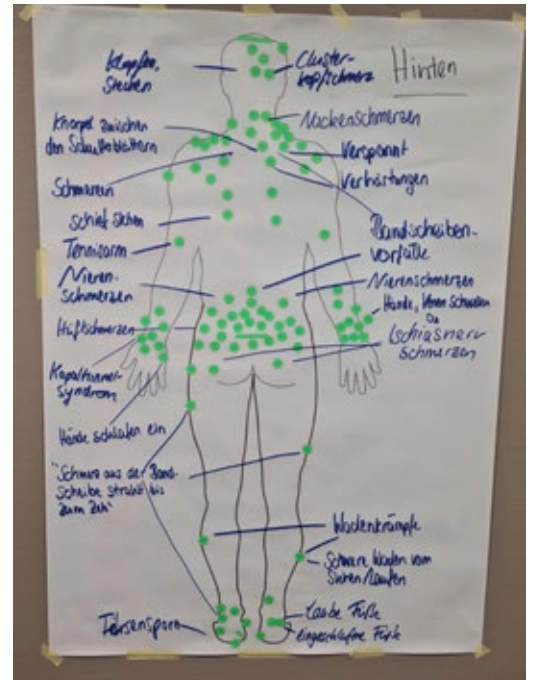 Hinten
Klopfen,
stechen
Cluster-
kopfschmerz
Nackenschmerzen
Knorpel zwischen
den Schulterblättern
Verspannt
Verhärtungen
Schmerzen
schief sitzen
Tennisarm
Bandscheiben-
vorfälle
Nieren-
schmerzen
Nierenschmerzen
Hände, Venen
Hüftschmerzen
Ischiasnerv
schmerzen
syndrom
Hände schlafen ein
"Schmerz aus der Band-
scheibe strahlt bis
zum Zeh"
Wadenkrämpfe
Schwere Waden vom
Stehen/Laufen
Fersensporn
Taube Füße
eingeschlafene Füße